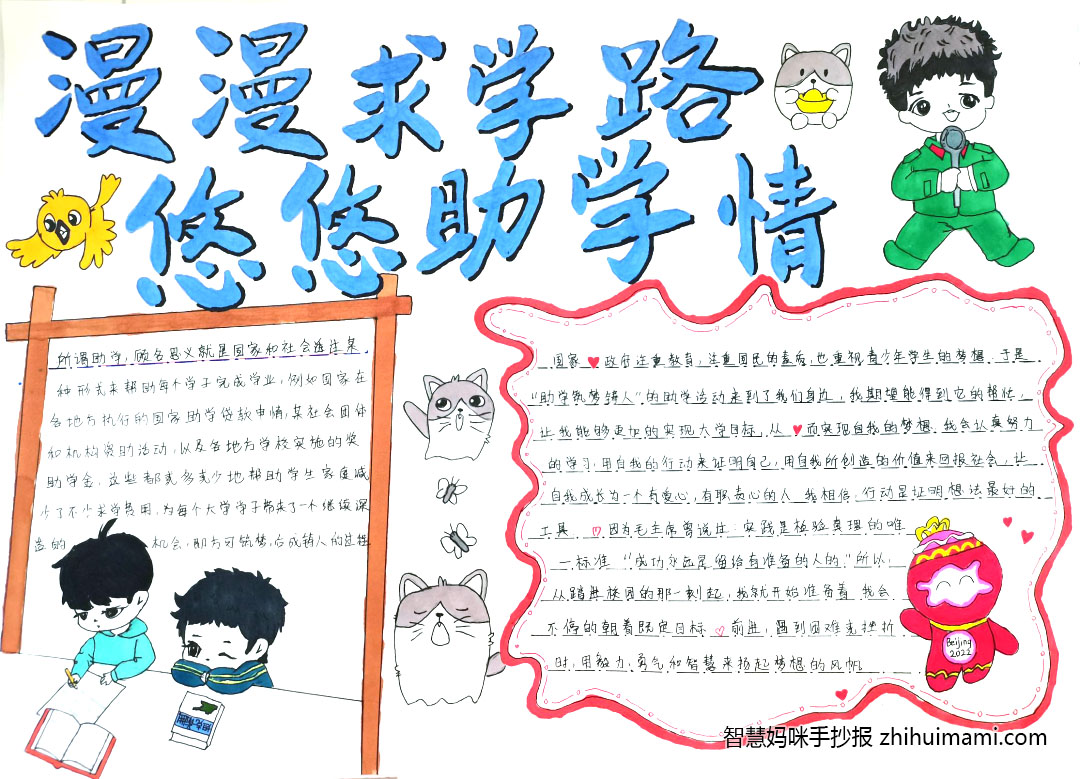 漫漫求学路
悠悠助学情
所谓助学,顾名思义就是国家和社会通过某
种形式来帮助每个学子完成学业,例如国家在
各地方执行的国家助学贷款申请,某社会团体
和机构资助活动,以及各地方学校实施的奖
助学金,这些都或多或少地帮助学生家庭减
少了不少求学费用,为每个大学学子带来了一个继续深
造的机会,即方可筑梦,后成铸人的过程
国家政府注重教育,注重国民的素质,也重视青少年学生的梦想.于是
“助学筑梦铸人”的助学活动来到了我们身边,我期望能得到它的帮忙,
让我能够更加的实现大学目标,从而实现自我的梦想.我会认真努力
的学习,用自我的行动来证明自己,用自我所创造的价值来回报社会,让
自我成长为一个有爱心,有职责心的人.我相信,行动是证明想法最好的
工具.因为毛主席曾说过:实践是检验真理的唯
一标准.“成功永远是留给有准备的人的.”所以,
从踏进校园的那一刻起,我就开始准备着.我会
不停的朝着既定目标前进,遇到困难克挫折
时,用毅力勇气和智慧来扬起梦想的风帆
Beijing
2022
智慧妈咪手抄报 zhihuimami.com